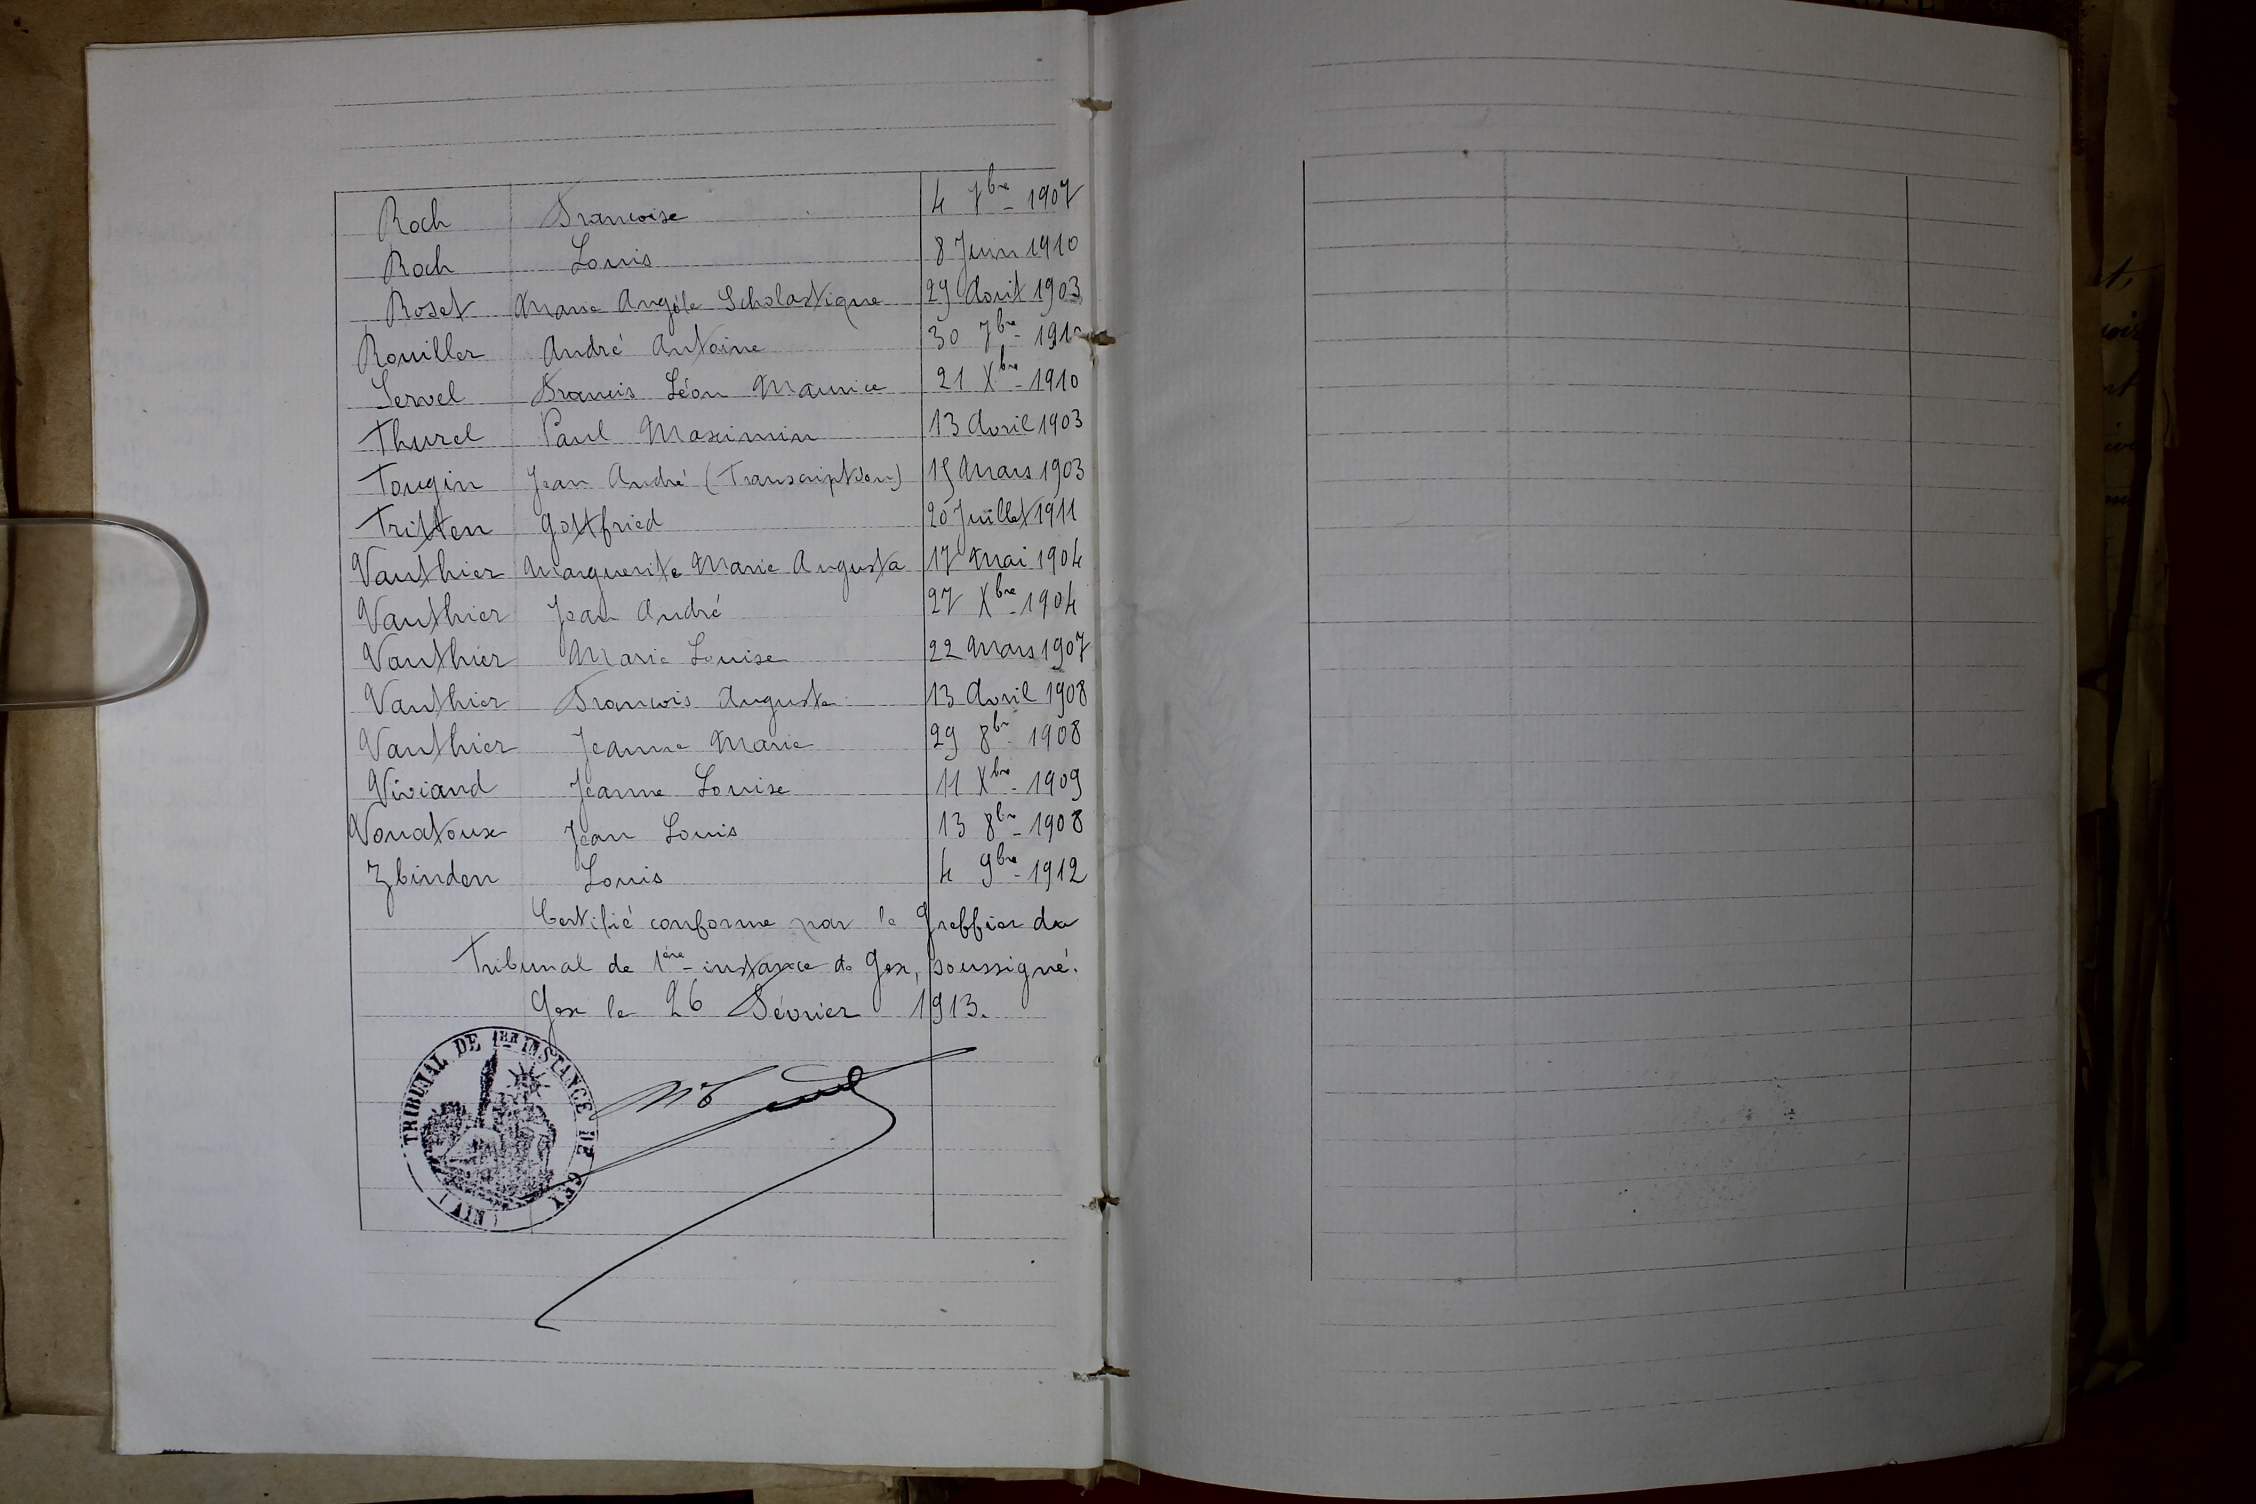 Roch Francoise 4 7bre 1907
Roch Louis 8 Juin 1910
Roset Marie Angèle Scholastique 29 Aout 1903
Rouiller André Antoine 30 7bre
Servel Francis Léon Maurice 21 Xbre 1910
Thurel Paul Maximin 13 Avril 1903
Tougin Jean André (Transcription) 15 Mars 1903
Tritten Gottfried 20 Juillet 1911
Vauthier Marguerite Marie Augusta 17 Mai 1904
Vauthier Jean André 27 Xbre 1904
Vauthier Marie Louise 22 Mars 1907
Vauthier Francois Auguste 13 Avril 1908
Vauthier Jeanne Marie 29 8bre 1908
Viviand Jeanne Louise 11 Xbre 1909
Vouatoux Jean Louis 13 8bre 1908
Zbinden Louis 4 9bre 1912
Certifié conforme par le Greffier du
Tribunal de 1ère instance de Gex, soussigné.
Gex le 26 Février 1913.
TRIBUNAL DE 1ERE INSTANCE DE GEX
(AIN)